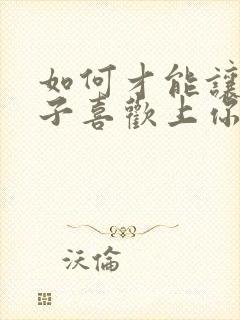 如何才能讓
子喜歡上你
沃倫